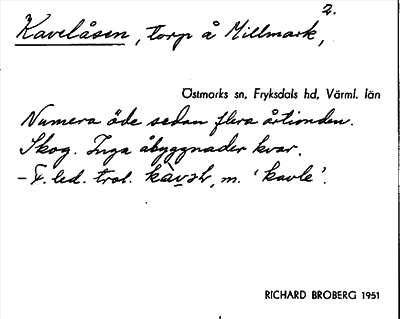 2.
Kavelåsen, torp å Millmark,
Östmarks sn, Fryksdals hd, Värml. län
Numera öde sedan flera årtionden.
Skog. Inga åbyggnader kvar.
– F. led. trol. kàvəl, m. 'kavle'.
RICHARD BROBERG 1951